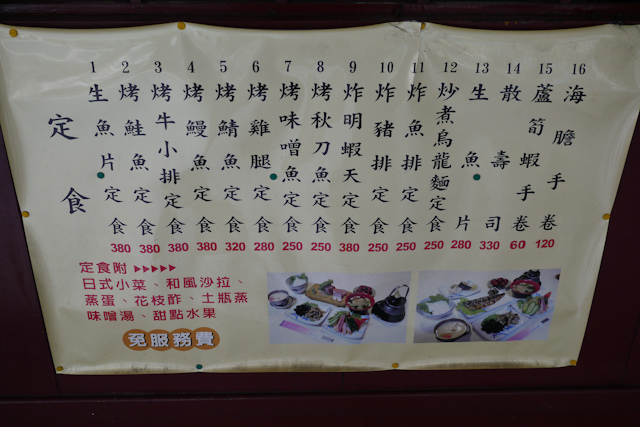 定食
1 生魚片定食 380
2 烤鮭魚定食 380
3 烤牛小排定食 380
4 烤鰻魚定食 380
5 烤鯖魚定食 320
6 烤雞腿定食 280
7 烤味噌魚定食 250
8 烤秋刀魚定食 250
9 炸明蝦天定食 380
10 炸豬排定食 250
11 炸魚排定食 250
12 炒煮烏龍麵定食 250
13 生魚片 280
14 散壽司 330
15 蘆筍蝦手卷 60
16 海膽手卷 120
定食附 ▶▶▶▶▶
日式小菜、和風沙拉、
蒸蛋、花枝酢、土瓶蒸
味噌湯、甜點水果
免服務費